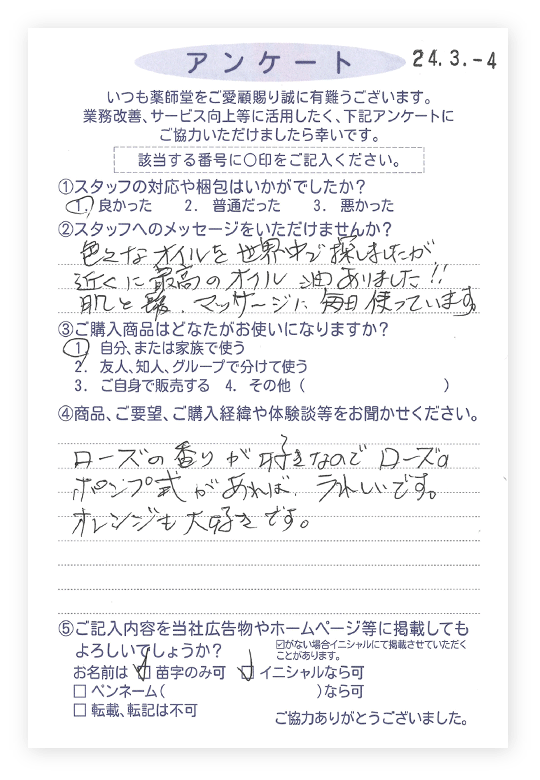 アンケート
24.3.-4
いつも薬師堂をご愛顧賜り誠に有難うございます。
業務改善、サービス向上等に活用したく、下記アンケートに
ご協力いただけましたら幸いです。
該当する番号に〇印をご記入ください。
①スタッフの対応や梱包はいかがでしたか?
1. 良かった 2. 普通だった 3. 悪かった
②スタッフへのメッセージをいただけませんか?
色々なオイルを世界中で探しましたが
近くに最高のオイル 油ありました!!
肌と 、マッサージに毎日使っています
③ご購入商品はどなたがお使いになりますか?
1 自分、または家族で使う
2. 友人、知人、グループで分けて使う
3. ご自身で販売する 4. その他( )
④商品、ご要望、ご購入経緯や体験談等をお聞かせください。
ローズの香りが好きなのでローズの
ポンプ式があれば、うれしいです。
オレンジも大好きです。
⑤ご記入内容を当社広告物やホームページ等に掲載しても
よろしいでしょうか?
☑がない場合イニシャルにて掲載させていただく
ことがあります。
お名前は ☑ 苗字のみ可 ☑ イニシャルなら可
□ ペンネーム( )なら可
□ 転載、転記は不可
ご協力ありがとうございました。